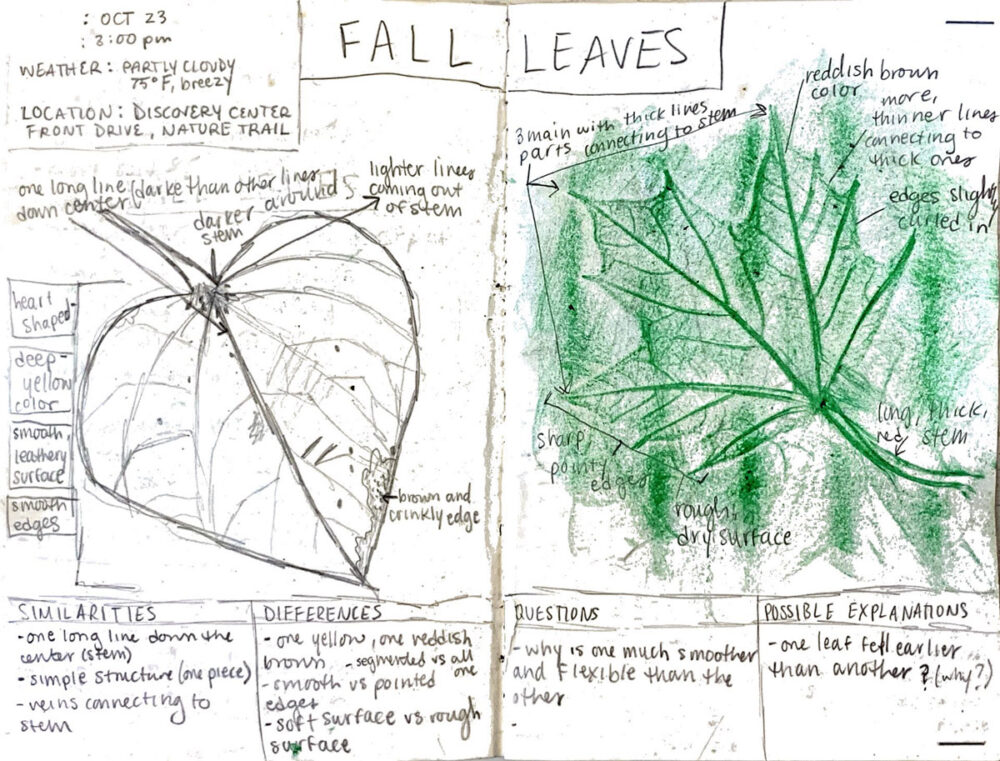 : OCT 23
: 3:00 pm
WEATHER: PARTLY CLOUDY
75°F, breezy
LOCATION: DISCOVERY CENTER
FRONT DRIVE, NATURE TRAIL
FALL LEAVES
one long line (darke than other lines)
down center
darker around
stem
lighter lines
coming out
of stem
heart
shaped
deep-
yellow
color
smooth,
leathery
surface
smooth
edges
brown and
crinkly edge
3 main with thick lines
parts connecting to stem
reddish brown
color
more,
thinner lines
connecting to
thick ones
edges slightly
curled in
long, thick,
red stem
sharp,
pointy
edges
rough,
dry surface
SIMILARITIES
- one long line down the
center (stem)
- simple structure (one piece)
- veins connecting to
stem
DIFFERENCES
- one yellow, one reddish
brown - segmented vs all
one
- smooth vs pointed
edges
- soft surface vs rough
surface
QUESTIONS
- why is one much smoother
and flexible than the
other
-
POSSIBLE EXPLANATIONS
- one leaf fell earlier
than another? (why?)